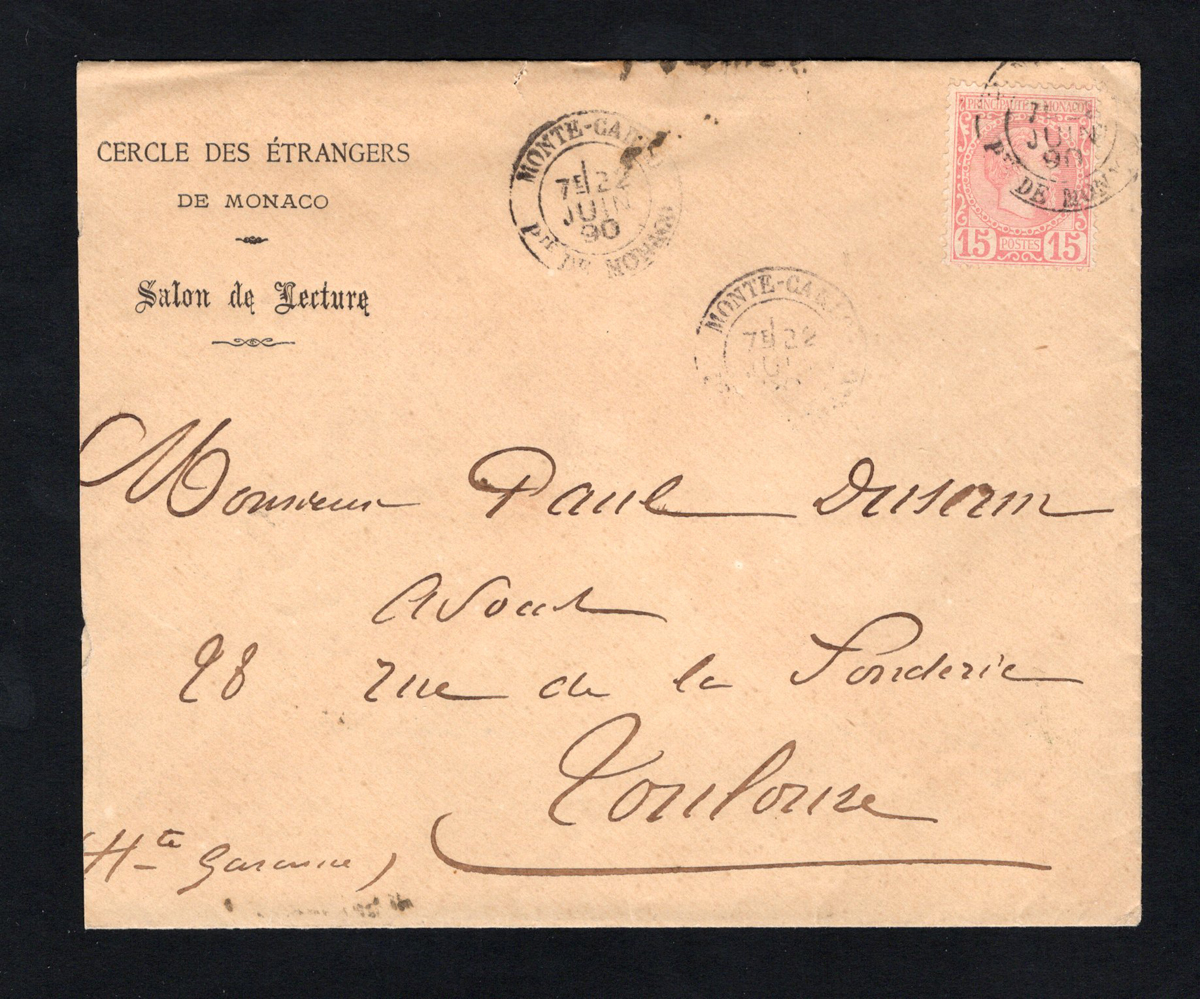 CERCLE DES ÉTRANGERS
DE MONACO
Salon de Lecture
MONTE-CARLO
7E 22
JUIN
90
PTE DE MONACO
PRINCIPAUTE DE MONACO
15 POSTES 15
7E
JUIN
90
DE MONACO
MONTE-CARLO
7E 22
Monsieur Paul
Avoué
28 rue de la Fonderie
Toulouse
Hte Garonne)